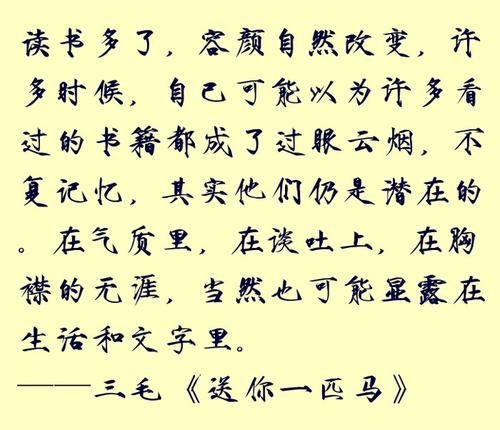 读书多了，容颜自然改变，许
多时候，自己可能以为许多看
过的书籍都成了过眼云烟，不
复记忆，其实他们仍是潜在的
。在气质里，在谈吐上，在胸
襟的无涯，当然也可能显露在
生活和文字里。
——三毛《送你一匹马》